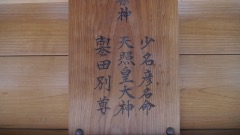 神
少名彦名命
天照皇大神
譽田別尊